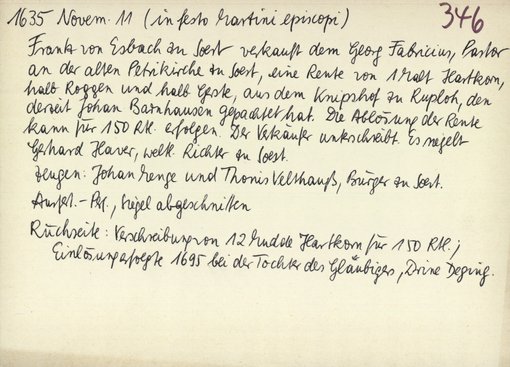 1635 Novem. 11 (in festo Martini episcopi) 346
Frank von Esbach zu Soest verkauft dem Georg Fabricius, Pastor
an der alten Petrikirche zu Soest, eine Rente von 1 Malt Hartkorn,
halb Roggen und halb Gerste, aus dem Knipshof zu Ruploh, den
derzeit Johan Barnhausen gepachtet hat. Die Ablösung der Rente
kann für 150 Rtl. erfolgen. Der Verkäufer unterschreibt. Es siegelt
Gerhard Haver, weltl. Richter zu Soest.
Zeugen: Johan Menge und Thonis Velthauß, Bürger zu Soest.
Ausf. - Pg., Siegel abgeschnitten
Rückseite: Verschreibung von 12 Mudde Hartkorn für 150 Rtl.;
Einlösung erfolgte 1695 bei der Tochter des Gläubigers, Drine Deging.